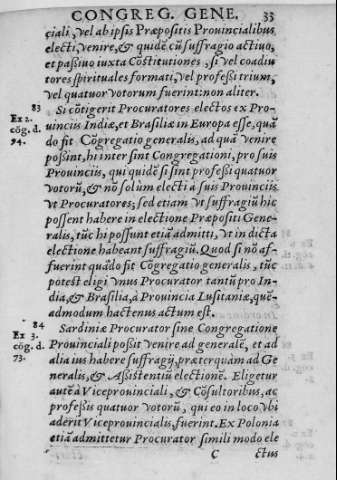 CONGREG. GENE. 33
ciali, vel ab ipsis Præpositis Prouincialibus
electi, venire, & quidē cū suffragio actiuo,
et passiuo iuxta Cōstitutiones, si vel coadiu
tores spirituales formati, vel professi trium,
vel quatuor votorum fuerint: non aliter.
83
Ex 2.
cōg. d.
94.
Si cōtigerit Procuratores electos ex Pro-
uinciis Indiæ, et Brasiliæ in Europa esse, quā
do fit Cōgregatio generalis, ad quā venire
possint, hi intersint Congregationi, pro suis
Prouinciis, qui quidē si sint professi quatuor
votorū, & nō solum electi à suis Prouinciis
vt Procuratores; sed etiam vt suffragiū hic
possent habere in electione Præpositi Gene-
ralis, tūc hi possunt etiā admitti, vt in dicta
electione habeant suffragiū. Quod si nō af-
fuerint quādo fit Cōgregatio generalis, tūc
potest eligi vnus Procurator tantū pro In-
dia, & Brasilia, à Prouincia Lusitaniæ, quē-
admodum hactenus actum est.
84
Ex 3.
cōg. d.
73.
Sardiniæ Procurator sine Congregatione
Prouinciali possit venire ad generalē, et ad
alia ius habere suffragij, præterquàm ad Ge
neralis, & Assistentiū electionē. Eligetur
autē à Viceprouinciali, & Cōsultoribus, ac
professis quatuor votorū, qui eo in loco vbi
aderit Viceprouincialis, fuerint. Ex Polonia
etiā admittetur Procurator simili modo ele
C ctus